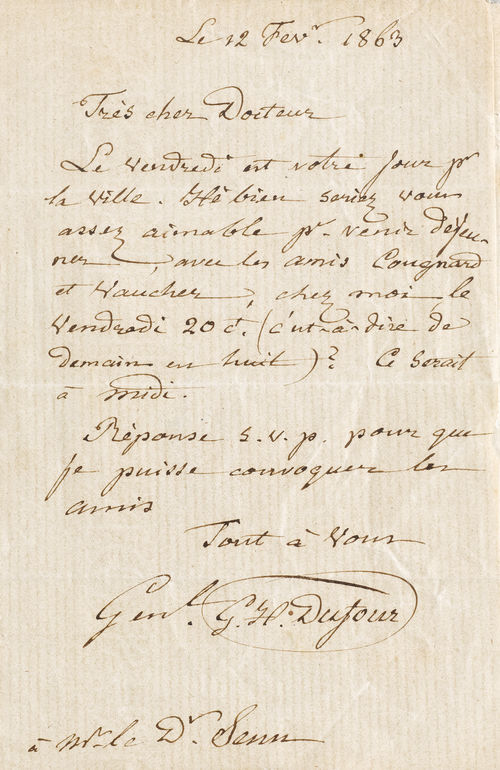 Le 12 Fevr. 1863
Très cher Docteur
Le Vendredi est votre Jour pr
la ville. Hé bien seriez vous
assez aimable pr. venir déjeu-
ner, avec les amis Cougnard
et Vaucher, chez moi, le
Vendredi 20 ct. (c'est-à-dire de
demain en huit)? Ce serait
à midi.
Réponse s.v.p. pour que
je puisse convoquer les
amis
Tout à Vous
Genl. G. H. Dufour
à Mr le Dr. Senn